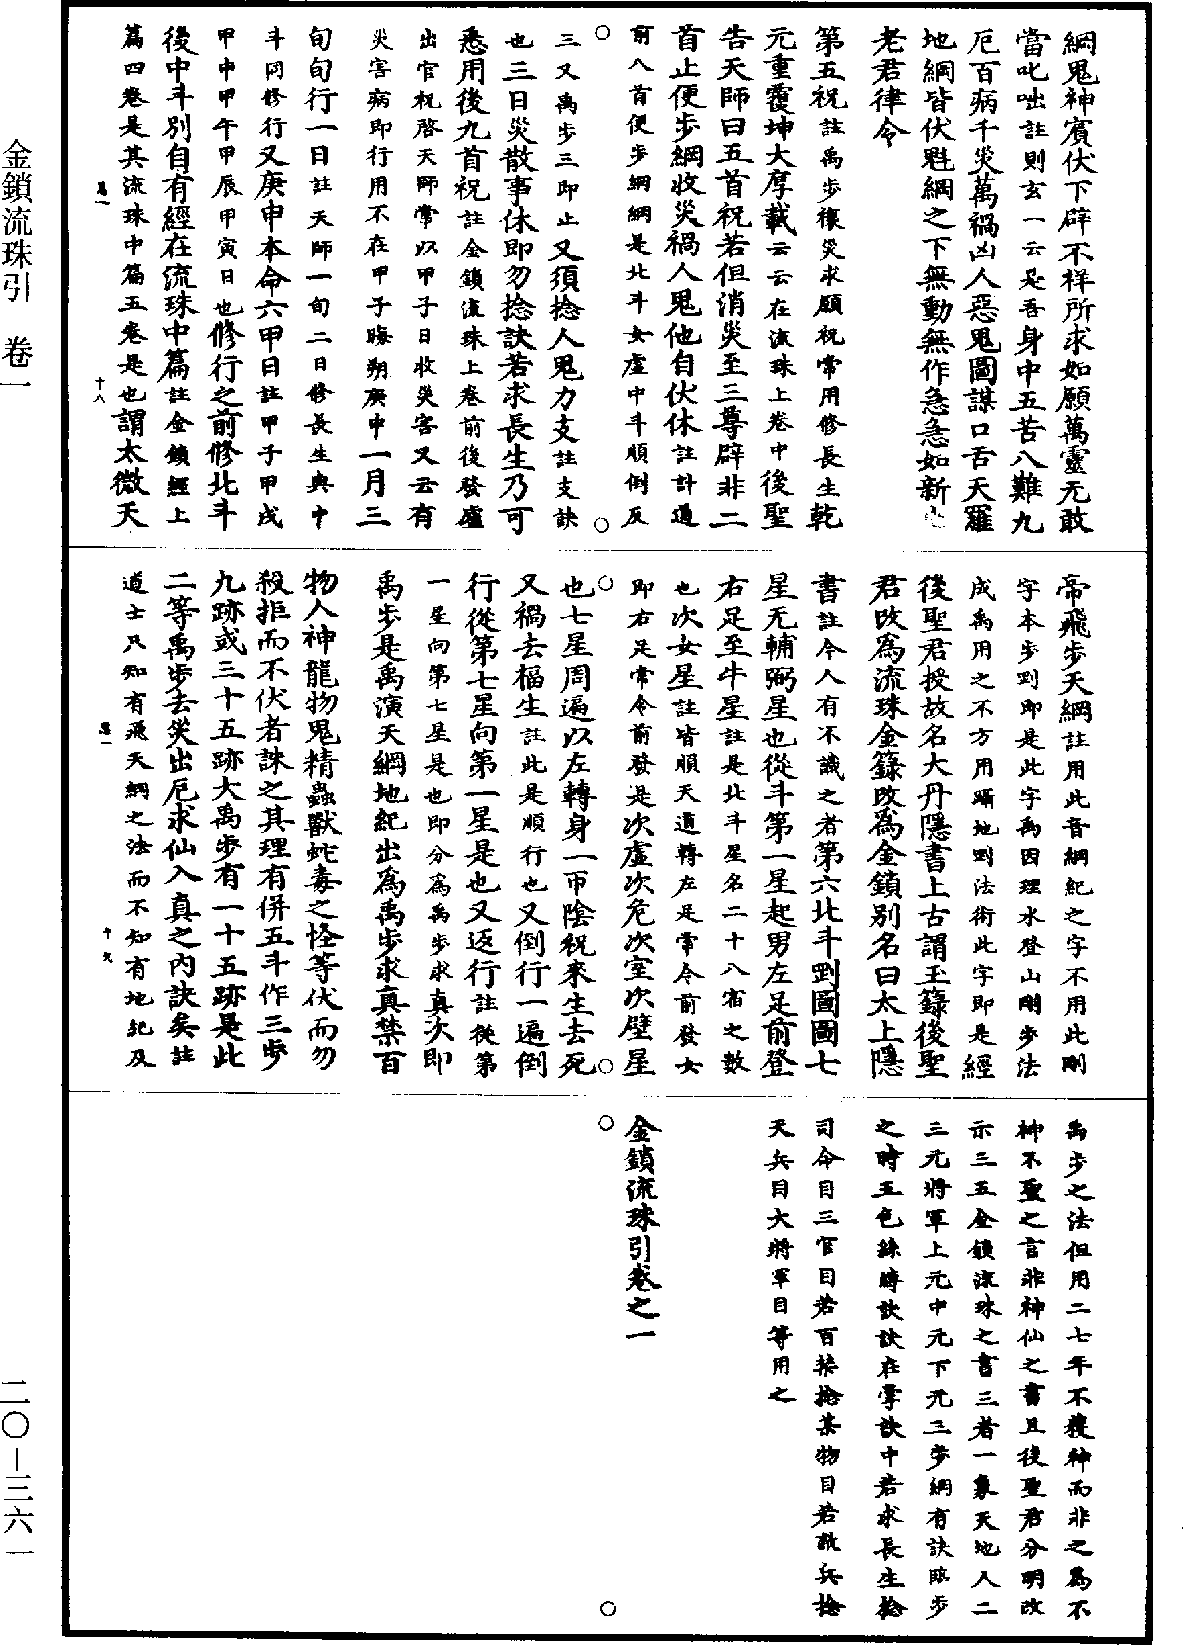 金鎖流珠引　卷一
二〇—三六一
綱鬼神賓伏下辟不祥所求如願萬靈无敢
當叱咄註則玄一云是吾身中五苦八難九
厄百病千災萬禍凶人惡鬼圖謀口舌天羅
地綱皆伏魁綱之下無動無作急急如新出
老君律令
第五祝註禹步禳災求願祝常用修長生乾
元重覆坤大厚載云云在流珠上卷中後聖
告天師曰五首祝若但消災至三尊辟非二
首止便步綱收災禍人鬼他自伏休註計過
前八首便步綱綱是北斗女虛中斗順倒反
三又禹步三即止又須捻人鬼力支註支訣
也三日災散事休即勿捻訣若求長生乃可
悉用後九首祝註金鎖流珠上卷前後發爐
出官祝啓天師常以甲子日收災害又云有
災害病即行用不在甲子晦朔庚申一月三
旬旬行一日註天師一旬二日修長生典中
斗同修行又庚申本命六甲日註甲子甲戌
甲申甲午甲辰甲寅日也修行之前修北斗
後中斗別自有經在流珠中篇註金鎖經上
篇四卷是其流珠中篇五卷是也謂太微天
卷一
十八
帝飛步天綱註用此音綱紀之字不用此剛
字本步到即是此字禹因理水登山剛步法
成禹用之不方用躡地剄法術此字即是經
後聖君授故名大丹隱書上古謂玉籙後聖
君改爲流珠金籙改爲金鎖別名曰太上隱
書註今人有不識之者第六北斗剄圖圖七
星无輔弼星也從斗第一星起男左足前登
右足至牛星註是北斗星名二十八宿之數
也次女星註皆順天道轉左足常令前發女
即右足常令前發是次虛次危次室次壁星
也七星周遍以左轉身一帀陰祝來生去死
又禍去福生註此是順行也又倒行一遍倒
行從第七星向第一星是也又返行註從第
一星向第七星是也即分爲禹步求真次即
禹步是禹演天綱地紀出爲禹步求真禁百
物人神龍物鬼精蟲獸蛇毒之怪等伏而勿
殺拒而不伏者誅之其理有併五斗作三步
九跡或三十五跡大禹步有一十五跡是此
二等禹步去災出厄求仙入真之內訣矣註
道士只知有飛天綱之法而不知有地紀及
卷一
十九
禹步之法但用二七年不獲神而非之爲不
神不聖之言非神仙之書且後聖君分明改
示三五金鎖流珠之書三者一象天地人二
三元將軍上元中元下元三步綱有訣臨步
之時五色絲縛訣訣在掌訣中若求長生捻
司命目三官目若百禁捻某物目若敵兵捻
天兵目大將軍目等用之
金鎖流珠引卷之一